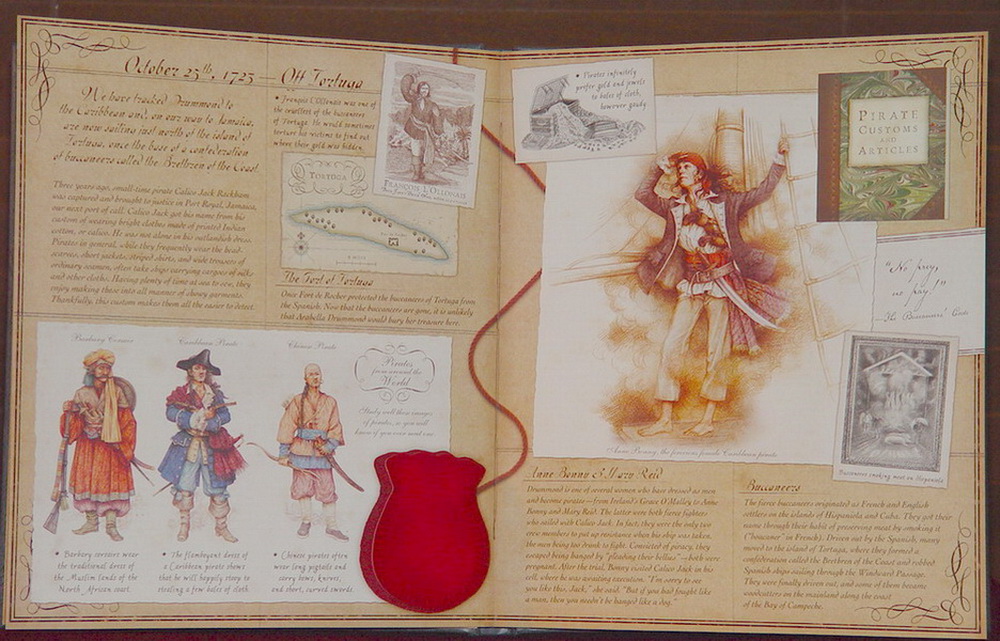 October 25th, 1723 — Off Tortuga
We have tracked Drummond to
the Caribbean and, on our way to Jamaica,
are now sailing just north of the island of
Tortuga, once the base of a confederation
of buccaneers called the Brethren of the Coast.
Three years ago, small-time pirate Calico Jack Rackham
was captured and brought to justice in Port Royal, Jamaica,
our next port of call. Calico Jack got his name from his
custom of wearing bright clothes made of printed Indian
cotton, or calico. He was not alone in his outlandish dress.
Pirates in general, while they frequently wear the head
scarves, short jackets, striped shirts, and wide trousers of
ordinary seamen, often take ships carrying cargoes of silks
and other cloths. Having plenty of time at sea to sew, they
enjoy making these into all manner of showy garments.
Thankfully, this custom makes them all the easier to detect.
• François L'Ollonais was one of
the cruellest of the buccaneers
of Tortuga. He would sometimes
torture his victims to find out
where their gold was hidden.
FRANÇOIS L'OLLONAIS
TORTUGA
The Fort of Tortuga
Once Fort de Rocher protected the buccaneers of Tortuga from
the Spanish. Now that the buccaneers are gone, it is unlikely
that Arabella Drummond would bury her treasure here.
Barbary Corsair
Caribbean Pirate
Chinese Pirate
Pirates
from around the
World
Study well these images
of pirates, so you will
know if you ever meet one.
• Barbary corsairs wear
the traditional dress of
the Muslim lands of the
North African coast.
• The flamboyant dress of
a Caribbean pirate shows
that he will happily stoop to
stealing a few bales of cloth.
• Chinese pirates often
wear long pigtails and
carry bows, knives,
and short, curved swords.
• Pirates infinitely
prefer gold and jewels
to bales of cloth,
however gaudy.
PIRATE
CUSTOMS
AND
ARTICLES
"No prey,
no pay!"
—The Buccaneers' Code
Anne Bonny the ferocious female Caribbean pirate
Buccaneers cooking meat on Hispaniola
Anne Bonny & Mary Reid
Drummond is one of several women who have dressed as men
and become pirates—from Ireland's Grace O'Malley to Anne
Bonny and Mary Reid. The latter were both fierce fighters
who sailed with Calico Jack. In fact, they were the only two
crew members to put up resistance when his ship was taken,
the men being too drunk to fight. Convicted of piracy, they
escaped being hanged by "pleading their bellies"—both were
pregnant. After the trial, Bonny visited Calico Jack in his
cell, where he was awaiting execution. "I'm sorry to see
you like this, Jack," she said. "But if you had fought like
a man, then you needn't be hanged like a dog."
Buccaneers
The fierce buccaneers originated as French and English
settlers on the islands of Hispaniola and Cuba. They got their
name through their habit of preserving meat by smoking it
("boucaner" in French). Driven out by the Spanish, many
moved to the island of Tortuga, where they formed a
confederation called the Brethren of the Coast and robbed
Spanish ships sailing through the Windward Passage.
They were finally driven out, and some of them became
woodcutters on the mainland along the coast
of the Bay of Campeche.